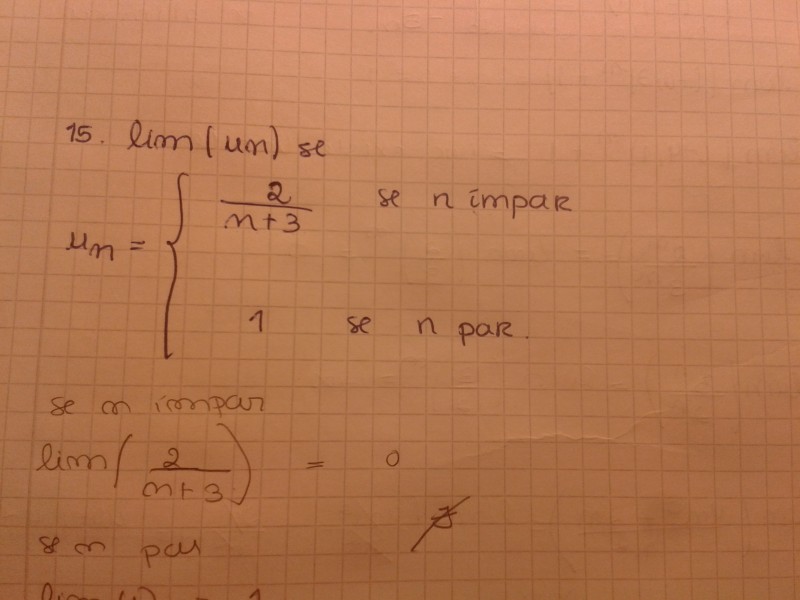 15. lim (un) se
un = { 2/(n+3) se n ímpar
1 se n par.
se n impar
lim ( 2/(n+3) ) = 0
∄
se n par
lim (1) = 1